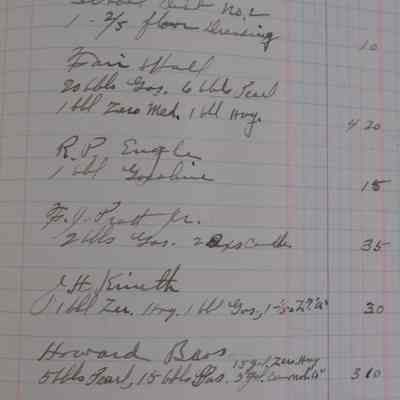 School Dist No. 2
1 - 2/5 floor Dressing 10
Fair Hall
20 bbls Gas. 6 bbls Pearl
1 bbl Zero Med. 1 bbl Hvy. 4 20
R. P. Engle
1 bbl Gasoline 15
F. J. Pratt Jr.
2 bbls Gas. 2 Bxs Candles 35
J. H. Kineth
1 bbl Zer. Hvy. 1 bbl Gas, 30
Howard Bros
15 gal. Zero Hvy
5 bbls Pearl, 15 bbls Gas. 3 10